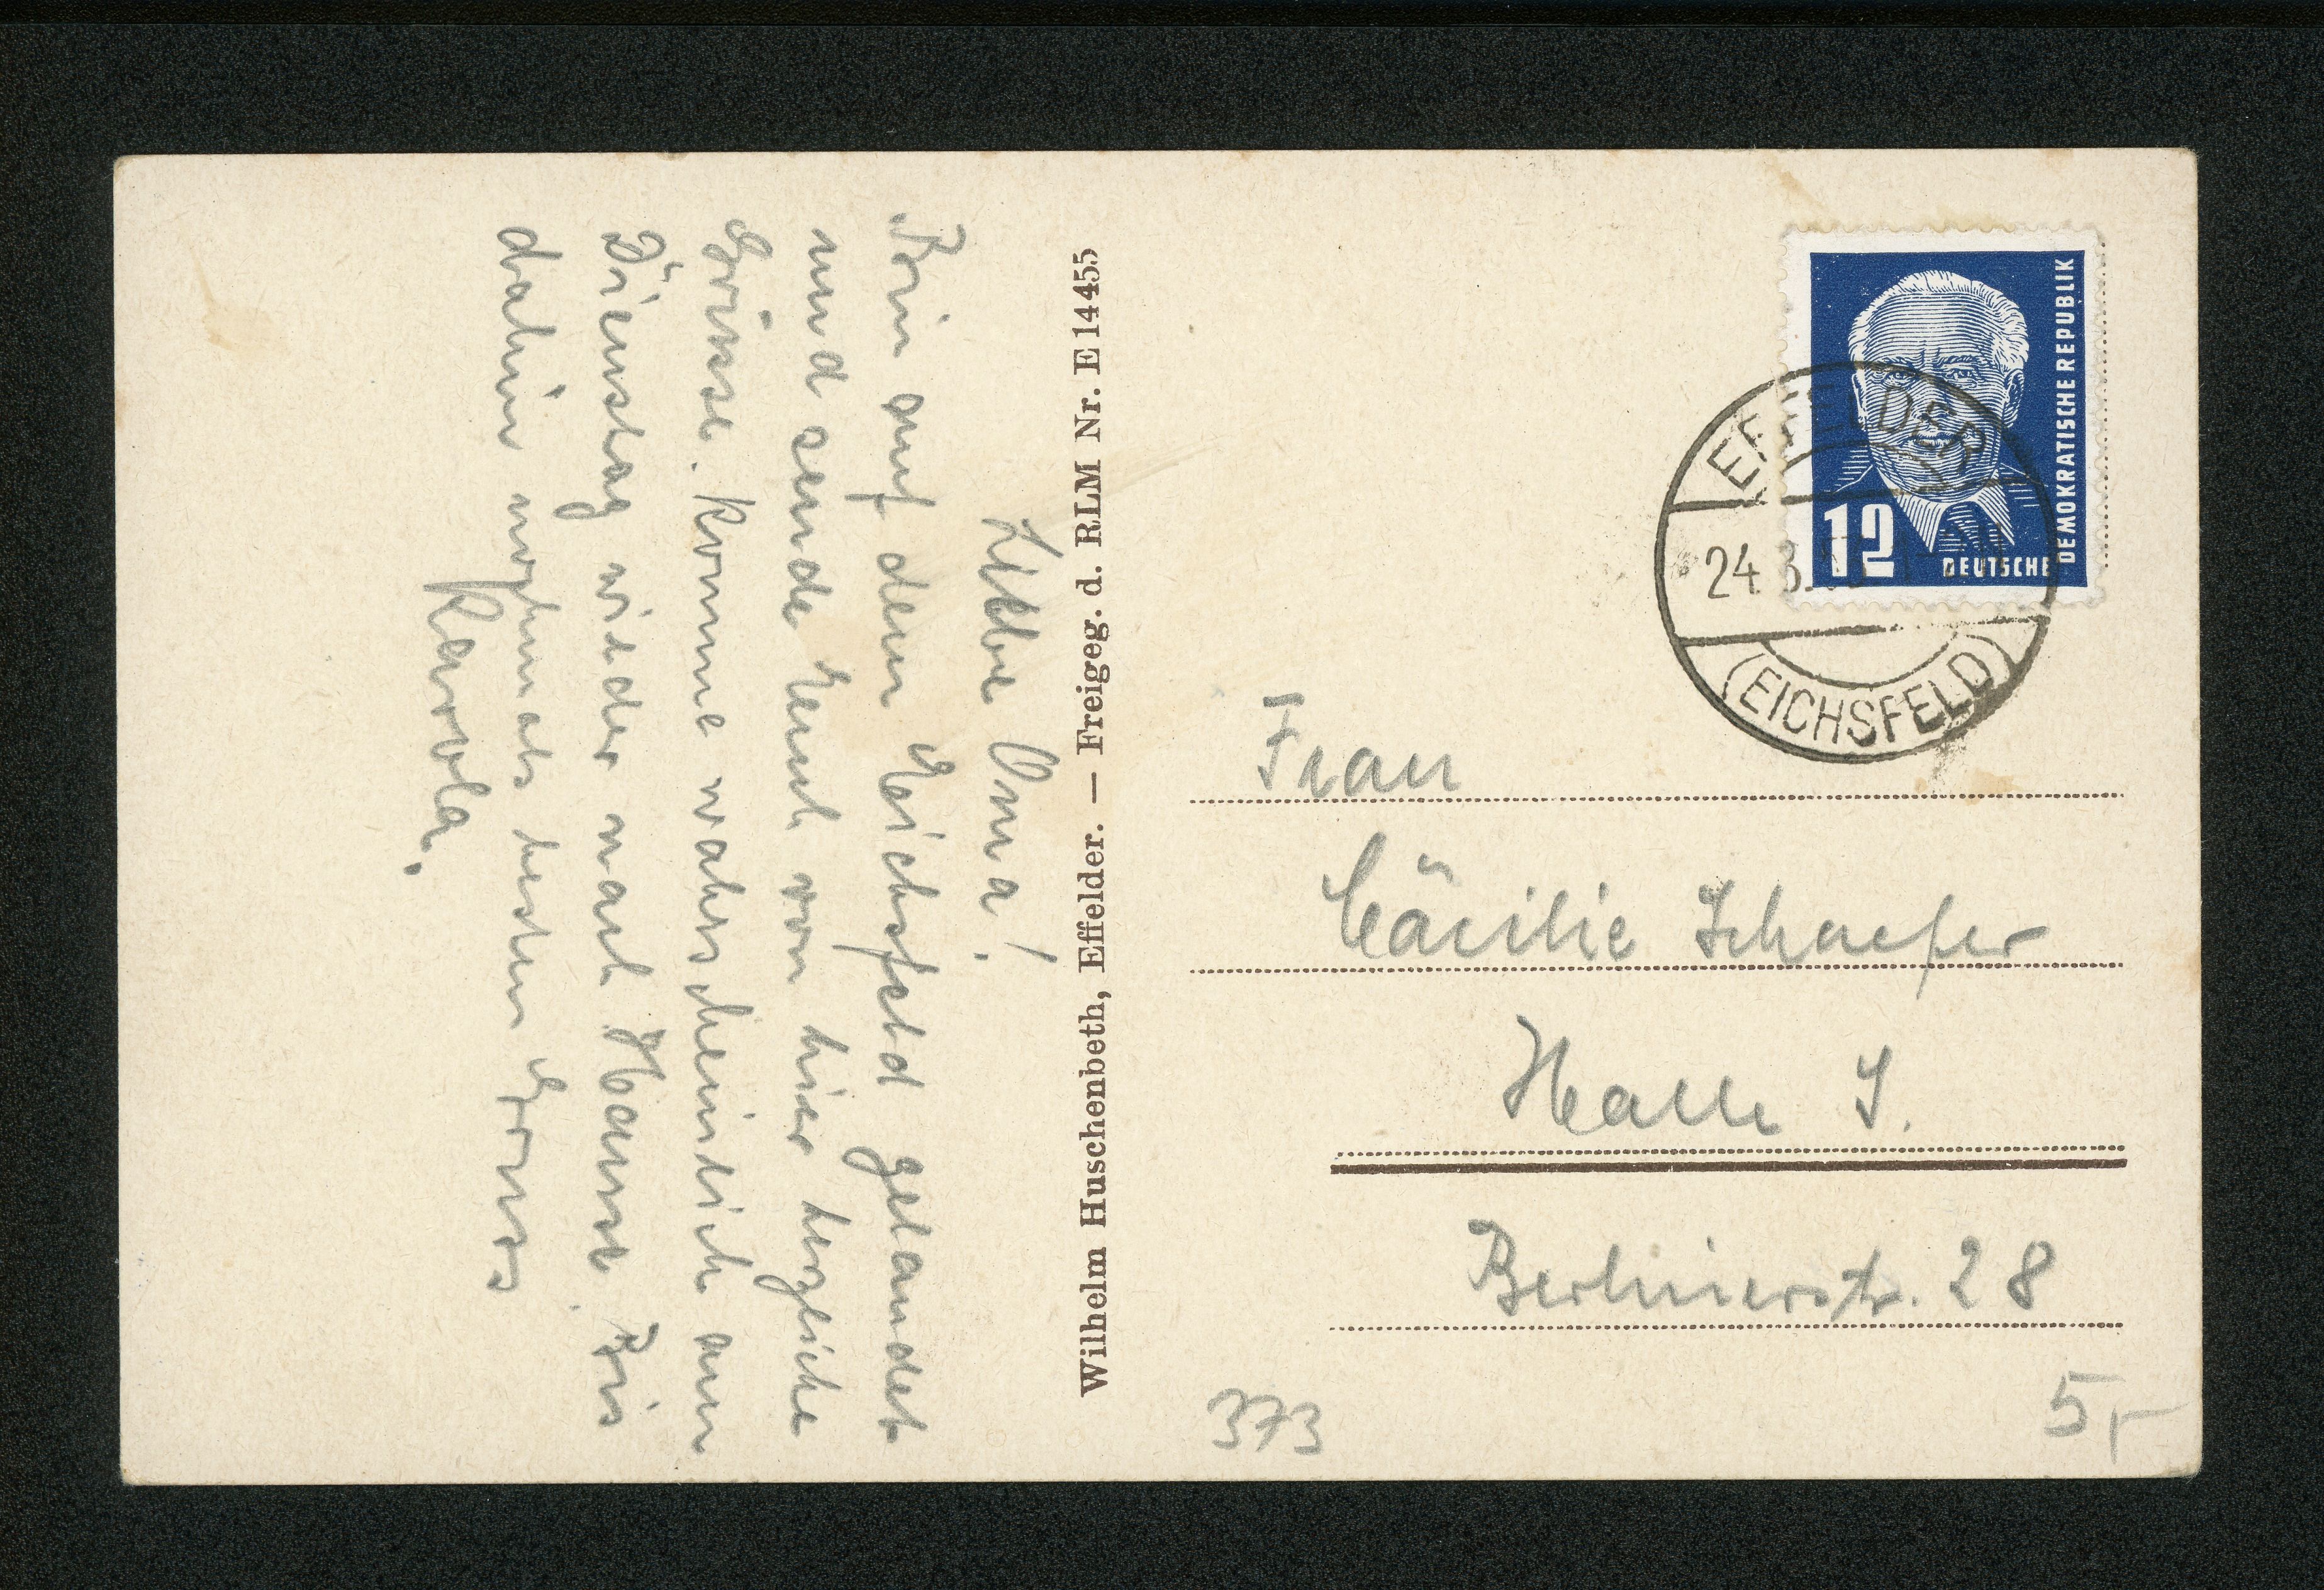 Liebe Oma!
Bin auf dem Eichsfeld gelandet
und sende Euch von hier herzliche
Grüsse. Komme wahrscheinlich am
Dienstag wieder nach Hause. Bis
dahin nochmals besten Gruss
Karola.
Wilhelm Huschenbeth, Effelder. — Freigeg. d. RLM Nr. E 14455
12
DEUTSCHE DEMOKRATISCHE REPUBLIK
EFFELDER
24.3.
(EICHSFELD)
Frau
Cäcilie Schaefer
Halle S.
Berlinerstr. 28
373
5,-